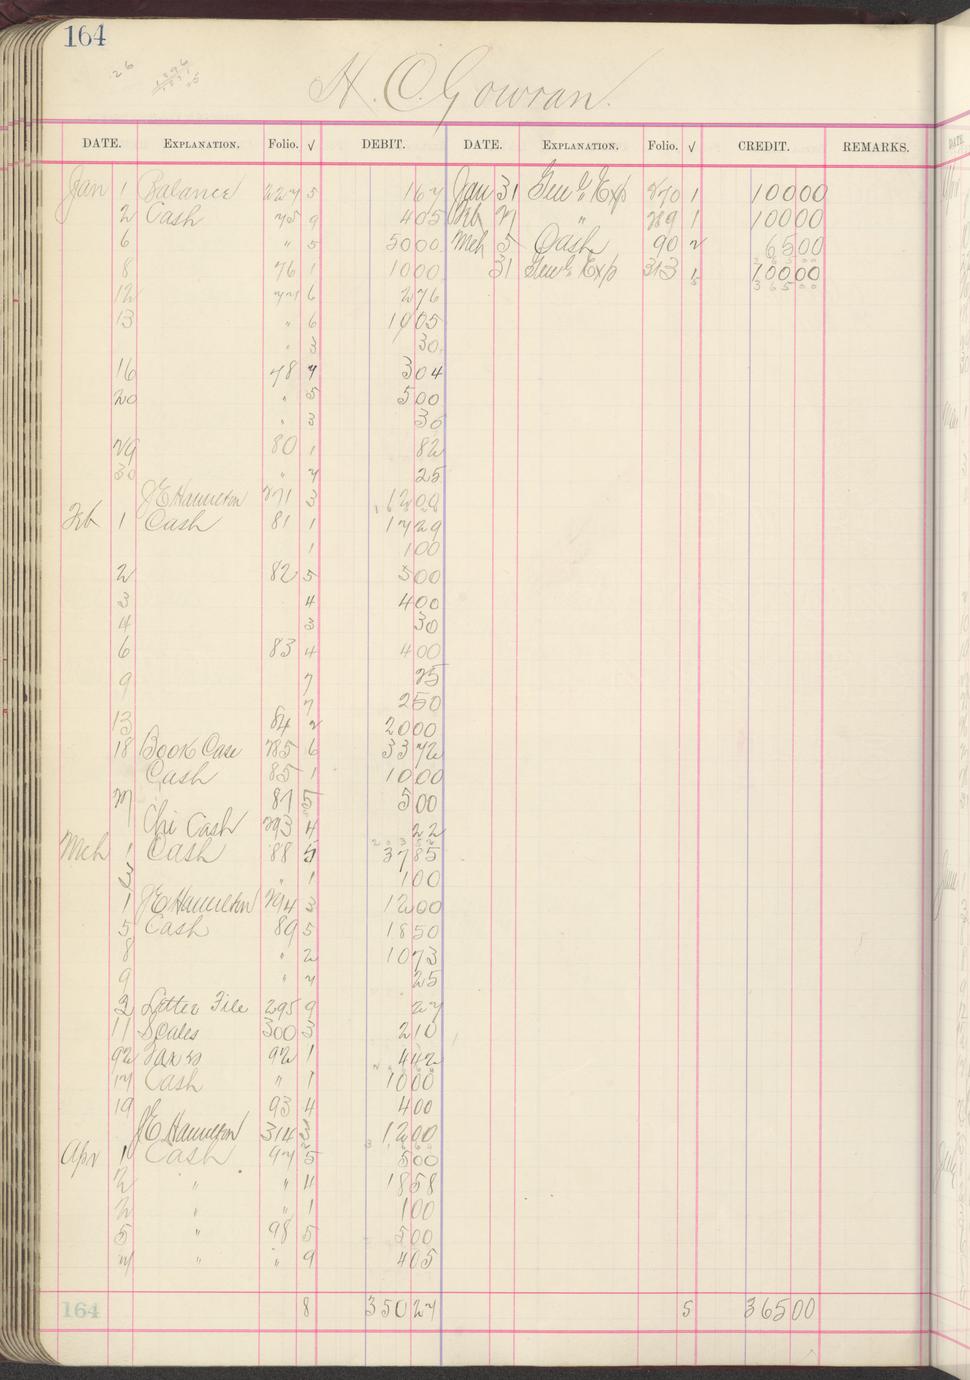 164
H. C. Gowran.
DATE. EXPLANATION. Folio. √ DEBIT. DATE. EXPLANATION. Folio. √ CREDIT. REMARKS.
Jan 1 Balance 227 5 167 Jan 31 Gen'l Exp 270 1 10000
2 Cash 75 9 405 Feb 27 " 289 1 10000
6 " 5 5000 Mch 5 Cash 90 2 6500
8 76 1 1000 31 Gen'l Exp 313 1 10000
12 77 6 276 36500
13 " 6 1005
" 3 30
16 78 7 304
20 " 5 500
" 3 30
29 80 1 82
30 " 7 25
J E Hamilton 271 3 1200
Feb 1 Cash 81 1 1729
1 100
2 82 5 500
3 4 400
4 3 30
6 83 4 400
9 7 25
7 250
13 84 2 2000
18 Book Case 285 6 3372
Cash 85 1 1000
27 87 5 500
Chi Cash 293 4 22
Mch 1 Cash 88 5 3785
" 1 100
1 J E Hamilton 294 3 1200
5 Cash 89 5 1850
8 " 2 1073
9 " 7 25
2 Letter File 295 9 27
11 Scales 300 3 210
Taxes 92 1 442
17 Cash " 1 1000
19 93 4 400
J E Hamilton 314 3 1200
Apr 1 Cash 97 5 500
2 " " 4 1858
2 " " 1 100
5 " 98 5 500
7 " " 9 405
164 8 35027 5 36500